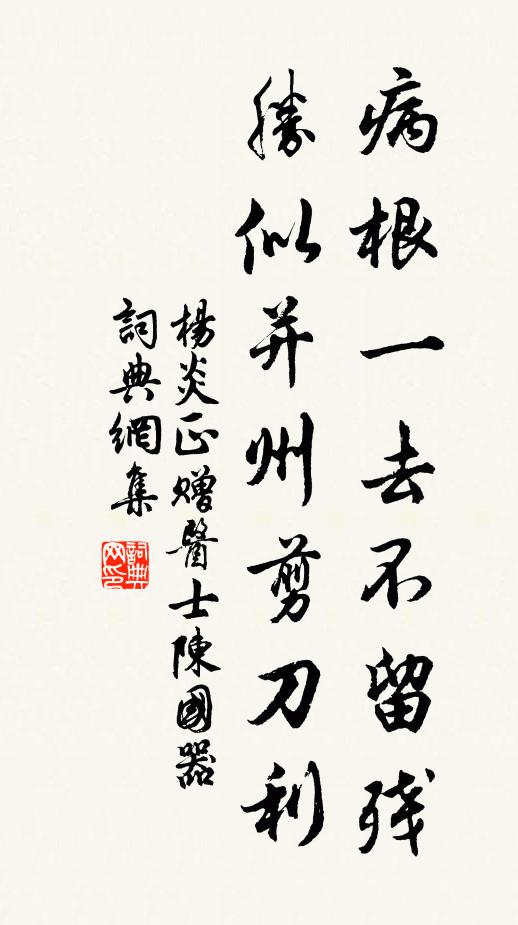 病根一去不留残
勝似并州剪刀利
楊炎正赠醫士陳國器
詞典網集
詞典网印